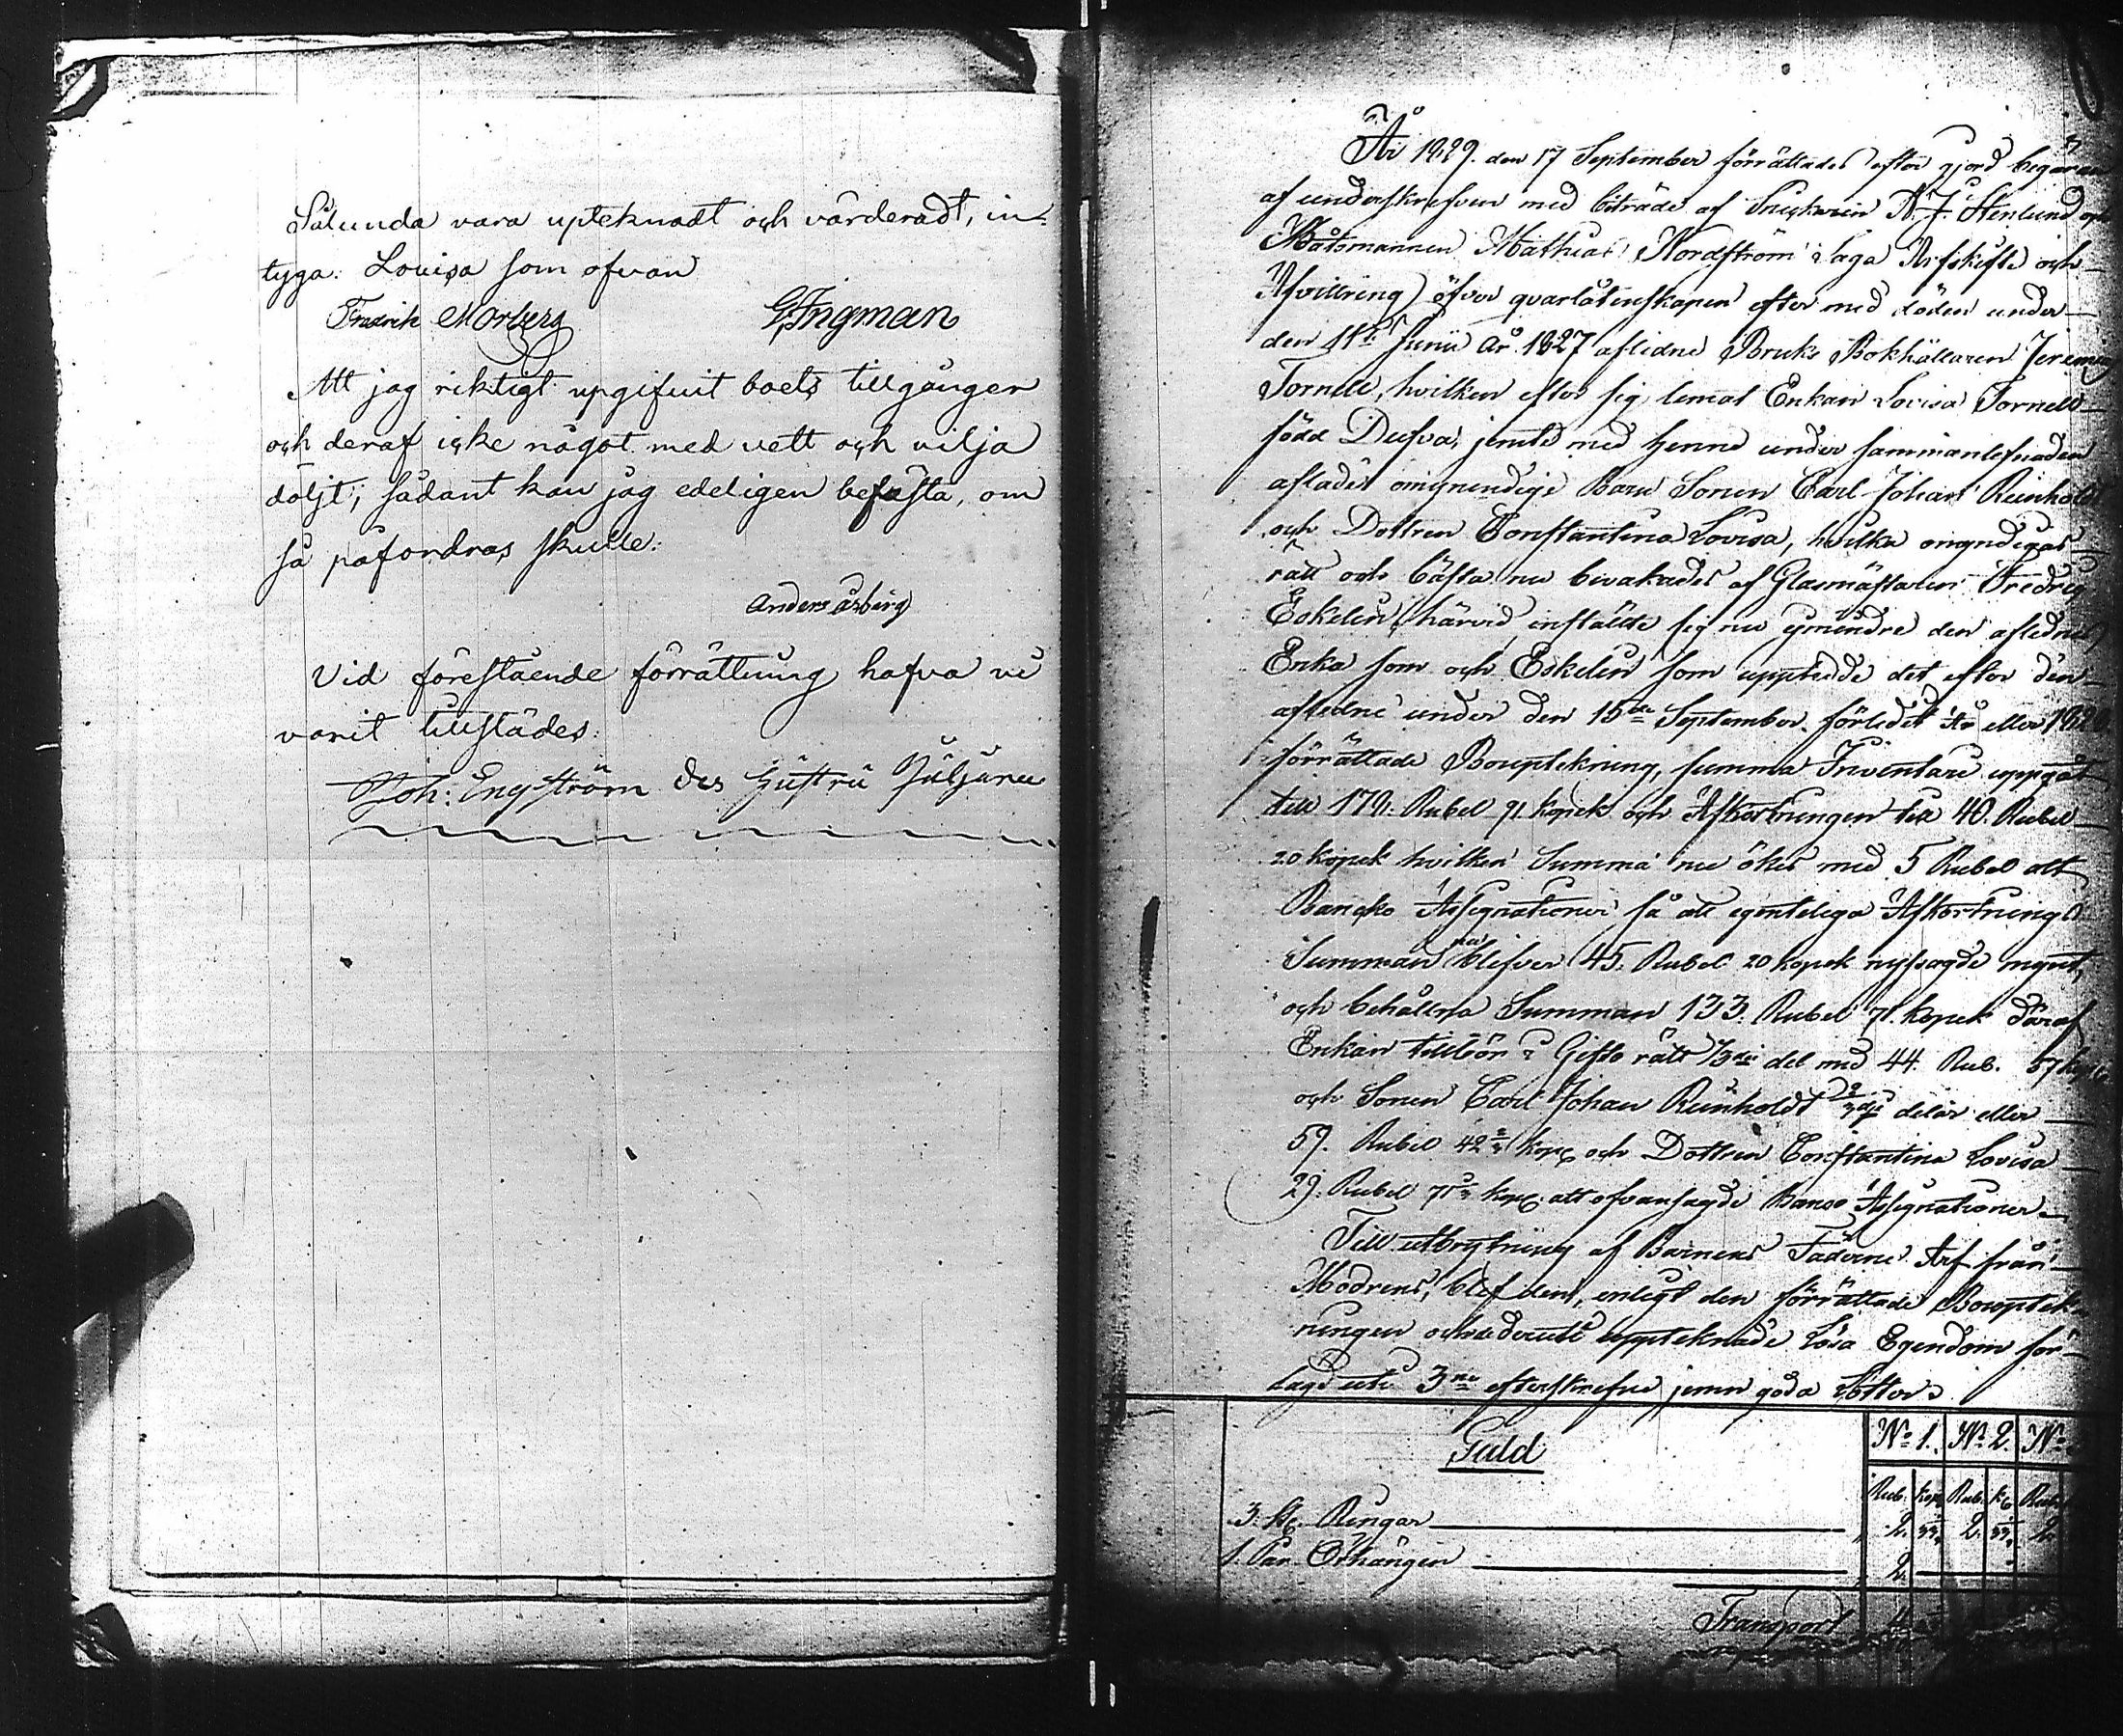 Sålunda vara upteknadt och värderadt, in-
tyga. Lovisa som ofvan
Fredrik Morberg G. Ingman
Att jag riktigt upgifvit boets tillgångar
och deraf icke något med vett och vilja
döljt; sådant kan jag edeligen befästa, om
så påfordras skulle.
Anders Åsberg
Vid förestående förrättning hafva vi
varit tillstädes.
Joh: Engström
År 1829. den 17 September förrättades efter gjord begäran
af underskrefven med biträde af A. J. Stenlund och
Mathias Nordström Laga Arfskifte och
Afvittring öfver qvarlåtenskapen efter med döden under
den Junii År 1827 aflidne Bruks Bokhållaren Jeremias
Tornell, hvilken efter sig lemat Enkan Lovisa Tornell
född Dufva, jemte med henne under sammanlefnaden
aflade omyndige Barn Sonen Carl Johan Reinholdt
och Dottren Constantina Lovisa, hvilka omyndigas
rätt och bästa nu bevakades af Glasmästaren Fredric
Eskelin, härvid instälde sig nu den aflednes
Enka som och Eskelin som uppteedde det efter den
afledne under den 15de September förledet År eller
förrättade Bouptekning, summa Inventarie uppgåt
till 179. Rubel 91 kopek och Afkortningen till 40. Rubel
20 kopek hvilken Summa nu ökes med 5 Rubel alt
Bancko Assignationer så att egenteliga Afkortnings
Summan nu blifver 45. Rubel 20 kopek nyssagde mynt,
och behållna Summan 133. Rubel 71. kopek däraf
Enkan tillhör i Gifto rätt 1/3 del med 44. Rub. 57 kop
och Sonen Carl Johan Reinholdt 2/3 delar eller
59. Rubel 42 kop och Dottren Constantina Lovisa
29. Rubel 71 kop alt ofvansagde Banco Assignationer.
Till utbrytning af Barnens Fäderne Arf från
Modrens, blef den, enligt den förrättade Bouptek-
ningen uppteknade Lösa Egendom för-
lagd uti 3ne efterskrefne jemn goda Lotter.
Guld
No 1. No 2. No
Rub: Kop Rub: Ko Rub
3. st. Ringar 2. 33 2. 33 2.
1. Par Örhängen 2.
Transport 4